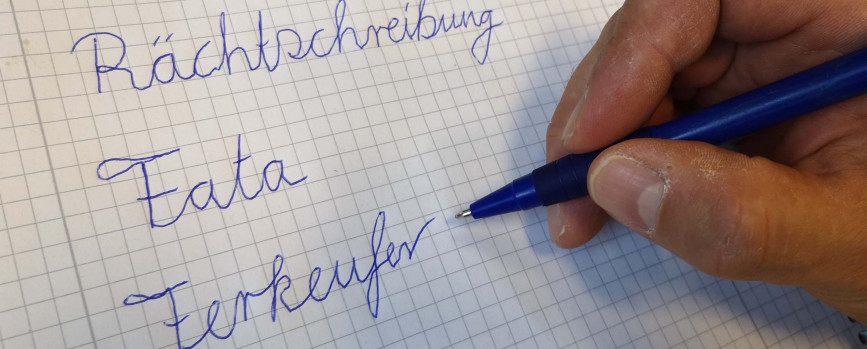 Rächtschreibung
Fata
Ferkeufer